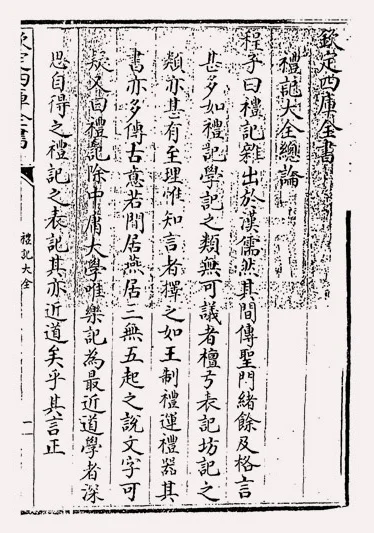 欽定四庫全書
禮記大全總論
程子曰禮記雜出於漢儒然其間傳聖門緒餘及格言
甚多如禮記學記之類無可議者檀弓表記坊記之
類亦甚有至理惟知言者擇之如王制禮運禮器其
書亦多傳古意若閒居燕居三無五起之說文字可
疑又曰禮記除中庸大學唯樂記為最近道學者深
思自得之禮記之表記其亦近道矣乎其言正
欽定四庫全書
禮記大全
一